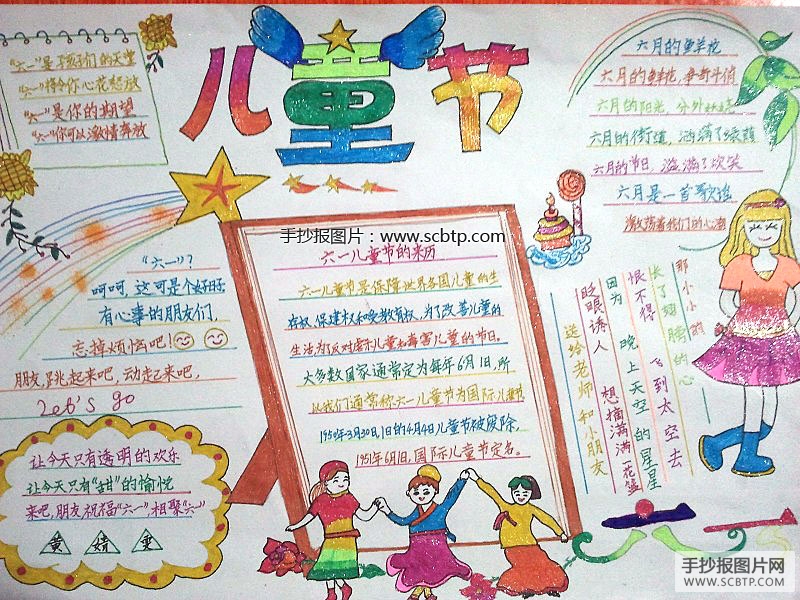 儿童节
"六一"是孩子们的天堂
"六一"将令你心花怒放
"六一"是你的期望
"六一"你可以激情奔放
六月的鲜花
六月的鲜花,争奇斗
六月的阳光,分外
六月的街道,涵满了绿荫
六月的节日,溢满了欢笑
六月是一首歌谣
激荡着我们的心潮
手抄报图片:www.scbtp.com
六一儿童节的来历
六一儿童节是保障世界各国儿童的生
存权、保健权和受教育权,为了改善儿童的
生活,为了反对虐杀儿童和毒害儿童的节日。
大多数国家通常定为每年6月1日,所
以我们通常称六一儿童节为国际儿童节
1950年3月30日的4月4日儿童节被废除,
1951年6月1日,国际儿童节定名。
"六一"?
呵呵,这可是个好日子
有心事的朋友们,
忘掉烦恼吧!
朋友,跳起来吧,动起来吧,
Let's go
让今天只有透明的欢乐
让今天只有"甜"的愉悦
来吧,朋友祝福"六一",相聚"六一"
黄 婧 雯
那小小的
长了翅膀的心
恨不得 飞到太空去
因为 晚上天空的星星
眨眼诱人 想摘满满一花篮
送给老师和小朋友
六一
手抄报图片网
WWW.SCBTP.COM